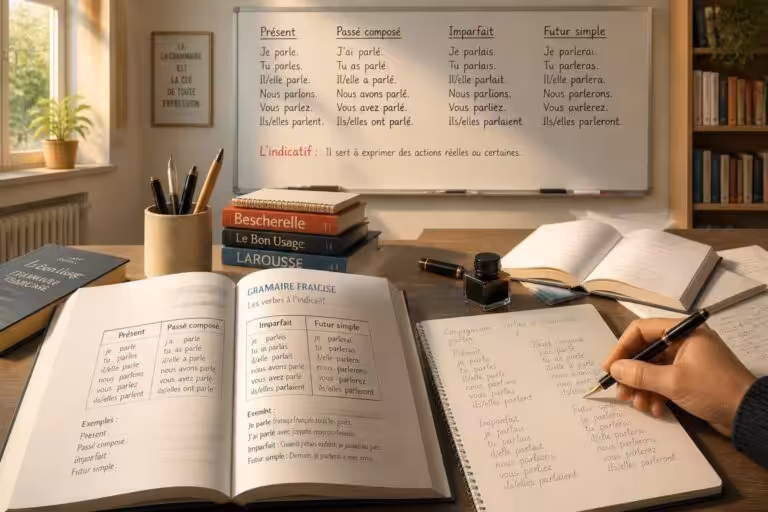 Présent Passé composé Imparfait Futur simple
Je parle. J'ai parlé. Je parlais. Je parlerai.
Tu parles. Tu as parlé. Tu parlais. Tu parleras.
Il/elle parle. Il/elle a parlé. Il/elle parlait. Il/elle parlera.
Nous parlons. Nous avons parlé. Nous parlions. Nous parlerons.
Vous parlez. Vous avez parlé. Vous parliez. Vous
Ils/elles parlent. Ils/elles ont parlé. Ils/elles parlaient Ils/elles parleront.
L'indicatif : Il sert à exprimer des actions réelles ou certaines
LA
LA GRAMMAIRE
EST
LA CLÉ
DE TOUTE
EXPRESSION
Bescherelle
Le Bon Usage
LAROUSSE
Le Bon Usage
GRAMMAIRE
Présent Passé composé
je parle j'ai parlé
tu parles tu as parlé
il/elle parle il/elle a parlé
nous parlons nous avons parlé
vous parlez vous avez parlé
ils/elles parlent ils/elles ont parlé
Exemples :
Présent :
Passé composé :
Imparfait :
Futur simple :
GRAMAIRE
Les verbes à
Imparfait Futur simple
je parlais je parlerai
tu parlais tu parleras
il/elle parlait il/elle parlera
nous parlions nous parlerons
vous parliez vous
ils/elles parlaient ils/elles parleront
Je parle français tous les jours.
J'ai parlé avec
Imparfait : Quand j'étais enfant, je
Futur simple : Demain, je parlerai à
Présent
je parle
tu parles
il/elle parle
nous parlons
vous parlez
ils/elles parlent
Imparfait
je parlais
tu parlais
il/elle parlait
nous parlions
vous parliez
ils/elles parlaient
Futur
je parlerai
tu parleras
il/elle parlera
nous parlerons
vous parlerez
ils/elles parleront